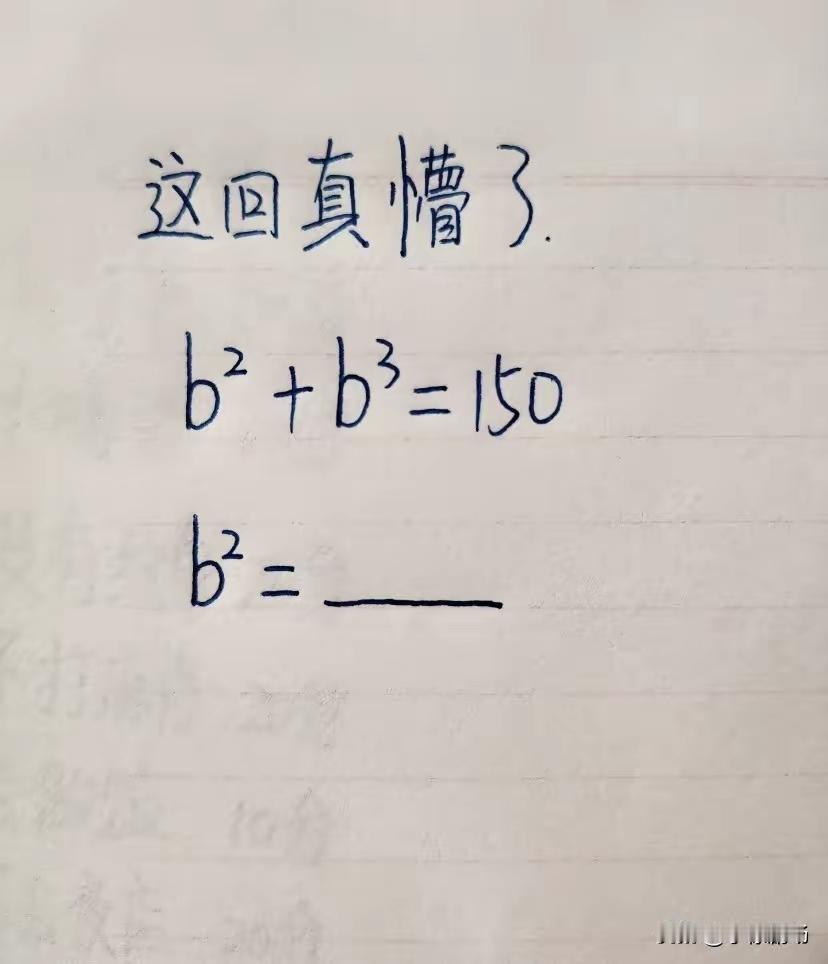 这回真懵了.
b² + b³ = 150
b² = ____